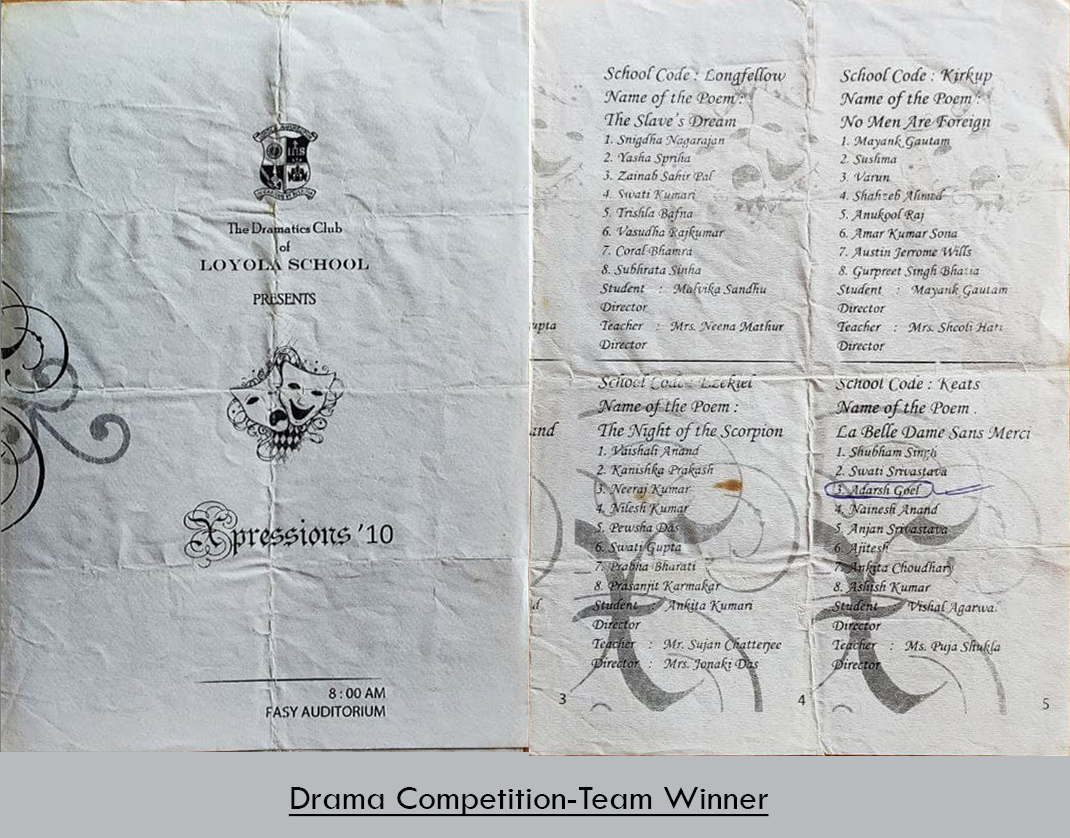 IHS
The Dramatics Club
of
LOYOLA SCHOOL
PRESENTS
Xpressions '10
8:00 AM
FASY AUDITORIUM
upta
and
d
3
School Code : Longfellow
Name of the Poem :
The Slave's Dream
1. Snigdha Nagarajan
2. Yasha Spriha
3. Zainab Sahir Pal
4. Swati Kumari
5. Trishla Bafna
6. Vasudha Rajkumar
7. Coral Bhamra
8. Subhrata Sinha
Student : Malvika Sandhu
Director
Teacher : Mrs. Neena Mathur
Director
School Code : Ezekiel
Name of the Poem :
The Night of the Scorpion
1. Vaishali Anand
2. Kanishka Prakash
3. Neeraj Kumar
4. Nilesh Kumar
5. Pewsha Das
6. Swati Gupta
7. Prabha Bharati
8. Prasanjit Karmakar
Student : Ankita Kumari
Director
Teacher : Mr. Sujan Chatterjee
Director : Mrs. Jonaki Das
4
School Code : Kirkup
Name of the Poem :
No Men Are Foreign
1. Mayank Gautam
2. Sushma
3. Varun
4. Shahzeb Ahmed
5. Anukool Raj
6. Amar Kumar Sona
7. Austin Jerrome Wills
8. Gurpreet Singh Bhatia
Student : Mayank Gautam
Director
Teacher : Mrs. Sheoli Hari
Director
School Code : Keats
Name of the Poem .
La Belle Dame Sans Merci
1. Shubham Singh
2. Swati Srivastava
3. Adarsh Goel
4. Nainesh Anand
5. Anjan Srivastava
6. Ajitesh
7. Ankita Choudhary
8. Ashish Kumar
Student : Vishal Agarwa.
Director
Teacher : Ms. Puja Shukla
Director
5
Drama Competition-Team Winner